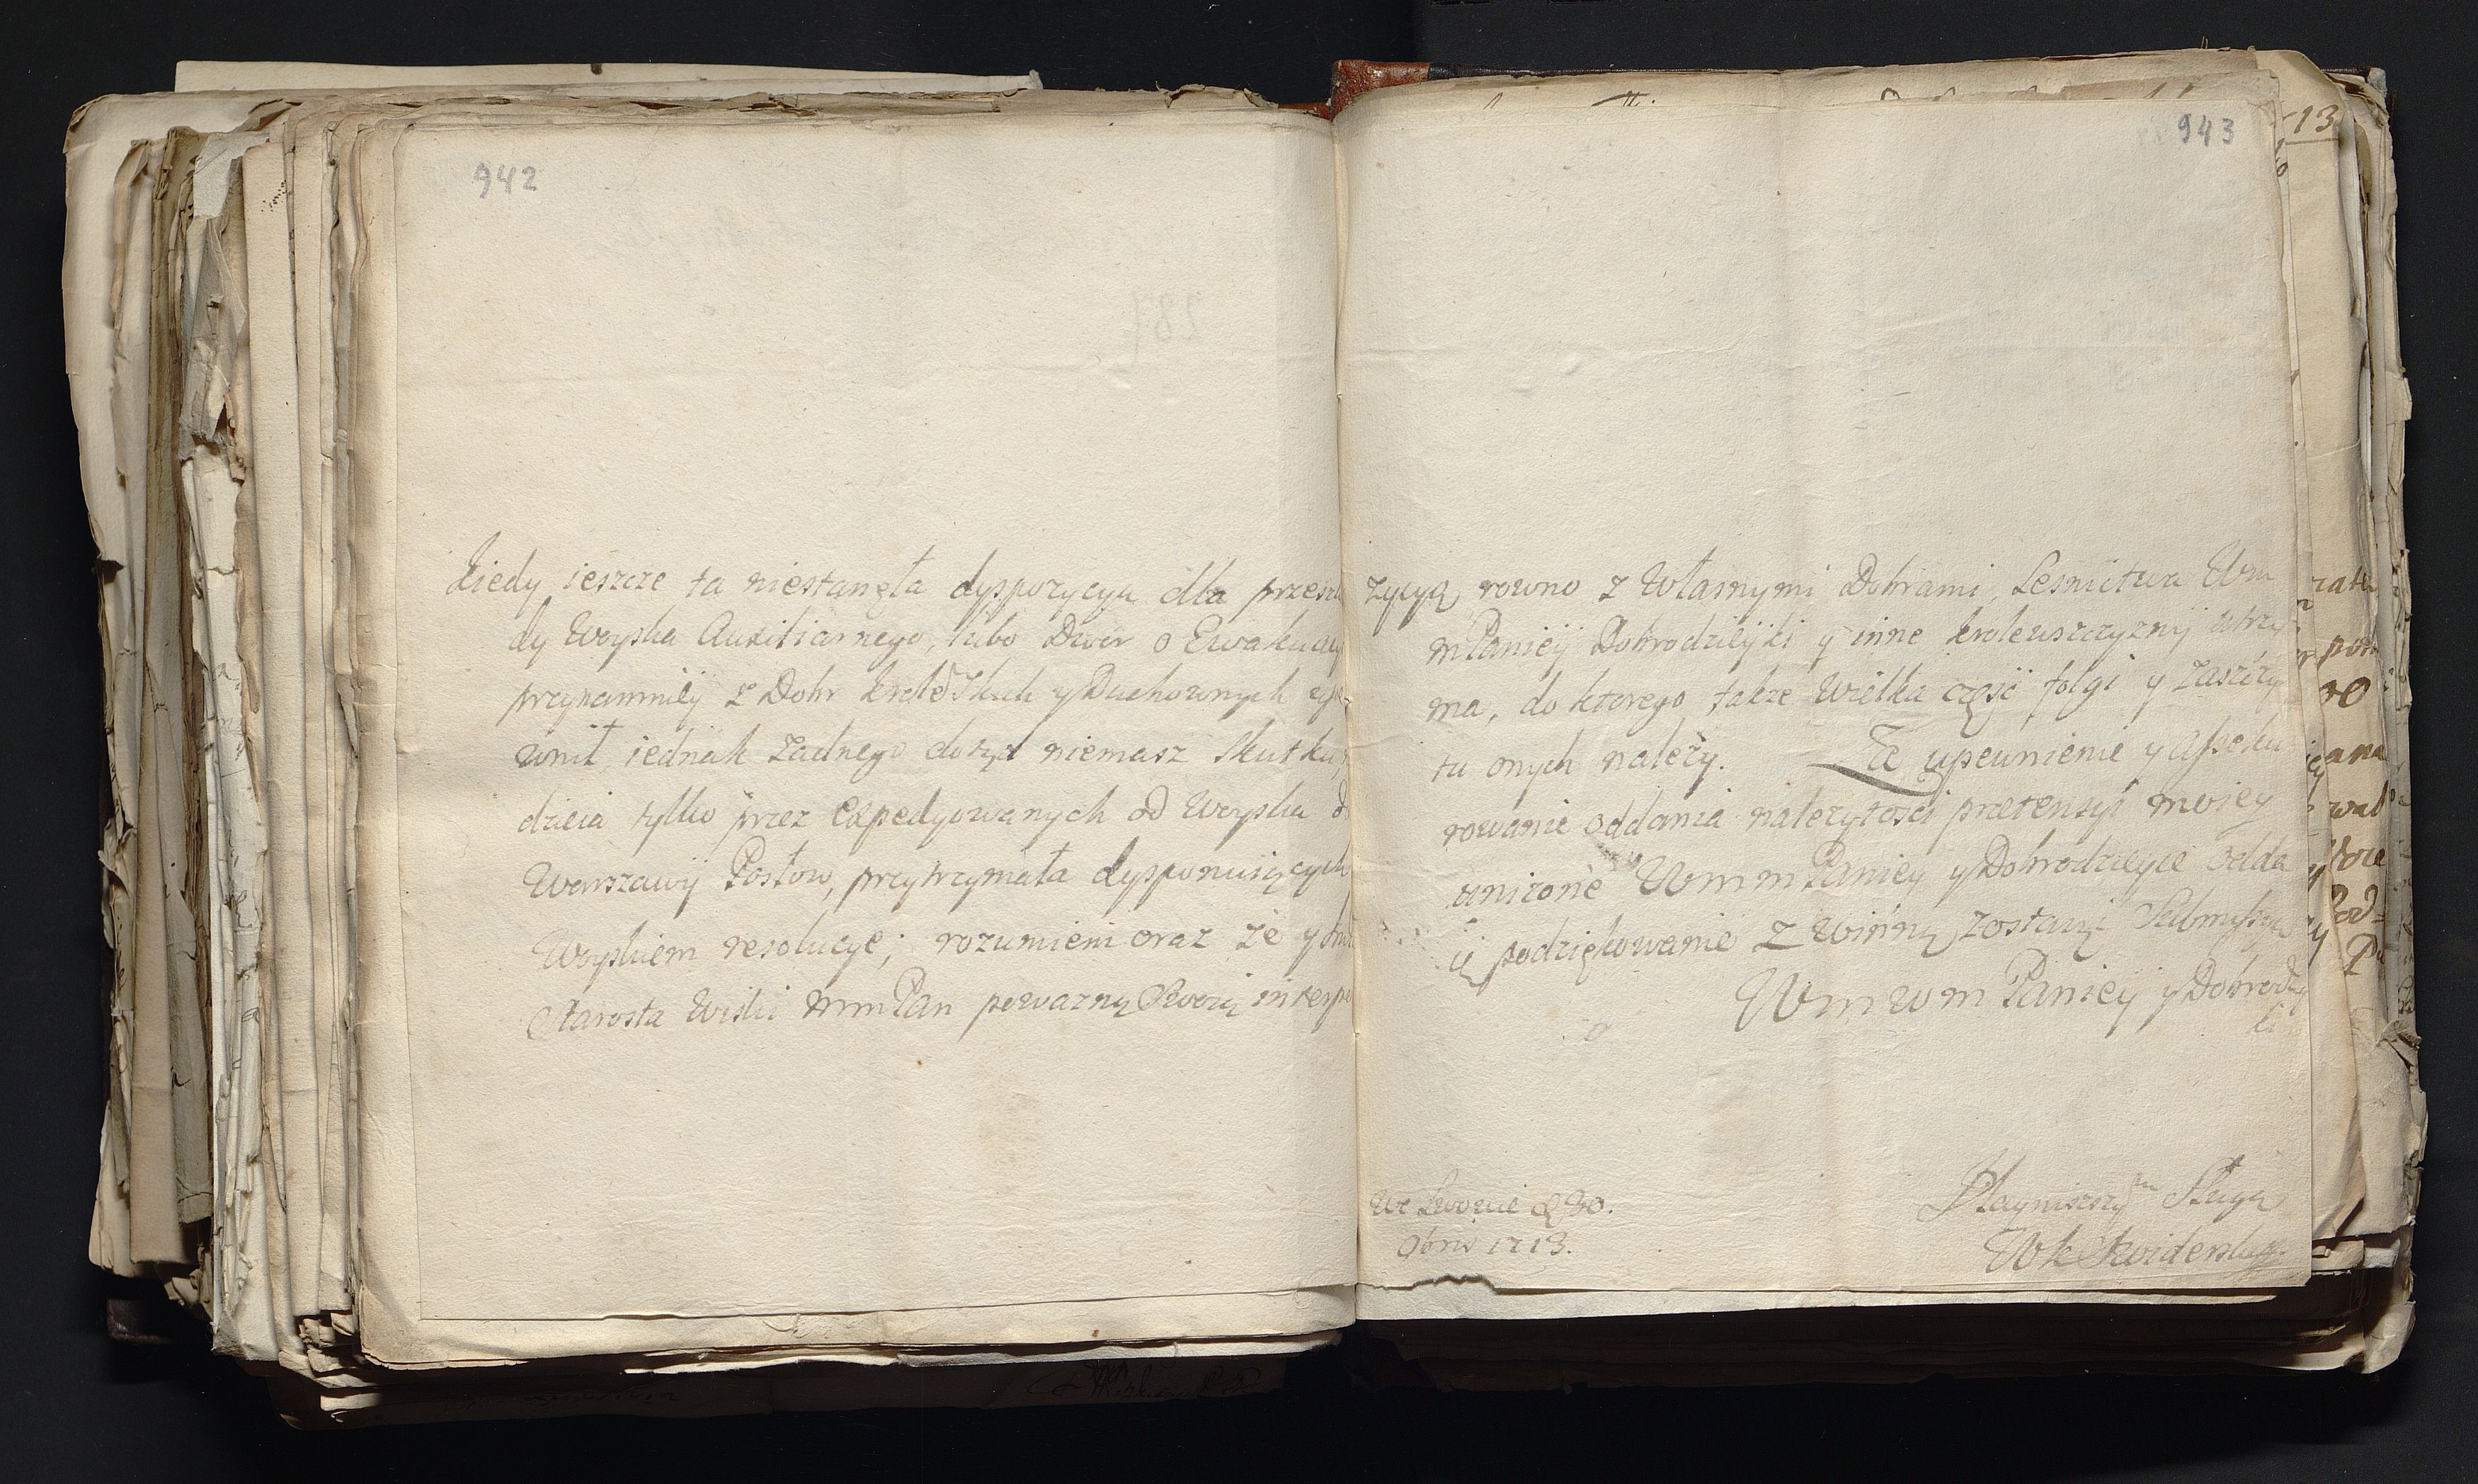 942
kiedy ieszcze ta niestanęła dyspozycya dla przeszko
dy Woyska Auxiliarnego, lubo Dwor o Ewakuacyi
przynammiey z Dobr Krolewskich y Duchownych
wnił, iednak żadnego dotąd niemasz Skutku,
dzieia tylko przez Expedyowanych od Woyska do
Warszawy Posłow, przytrzymała dysponuiących
Woyskiem resolucye; rozumiem oraz że y
Starosta Wiski mmPan poważną Swoią interpo
943
zycyą rowno z Własnymi Dobrami, Lesnictwa Wm
mPaniey Dobrodzieyki y inne krolewszczyzny utrzy
ma, do ktorego także Wielka część folgi y zaszczy
tu onych należy. Za upewnienie y asseku
rowanie oddania należytości pretensyi moiey
uniżone Wmm Paniey y Dobrodzieyce odda
ię podziękowanie z winną zostaiąc Submissyą
WmWm Paniey y Dobrodziy
ki
We Lwowie d 30.
9bris 1713.
Nayniszszym Sługą